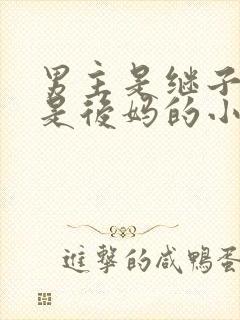 男主是继子
是後妈的小
进擊的咸鴨蛋